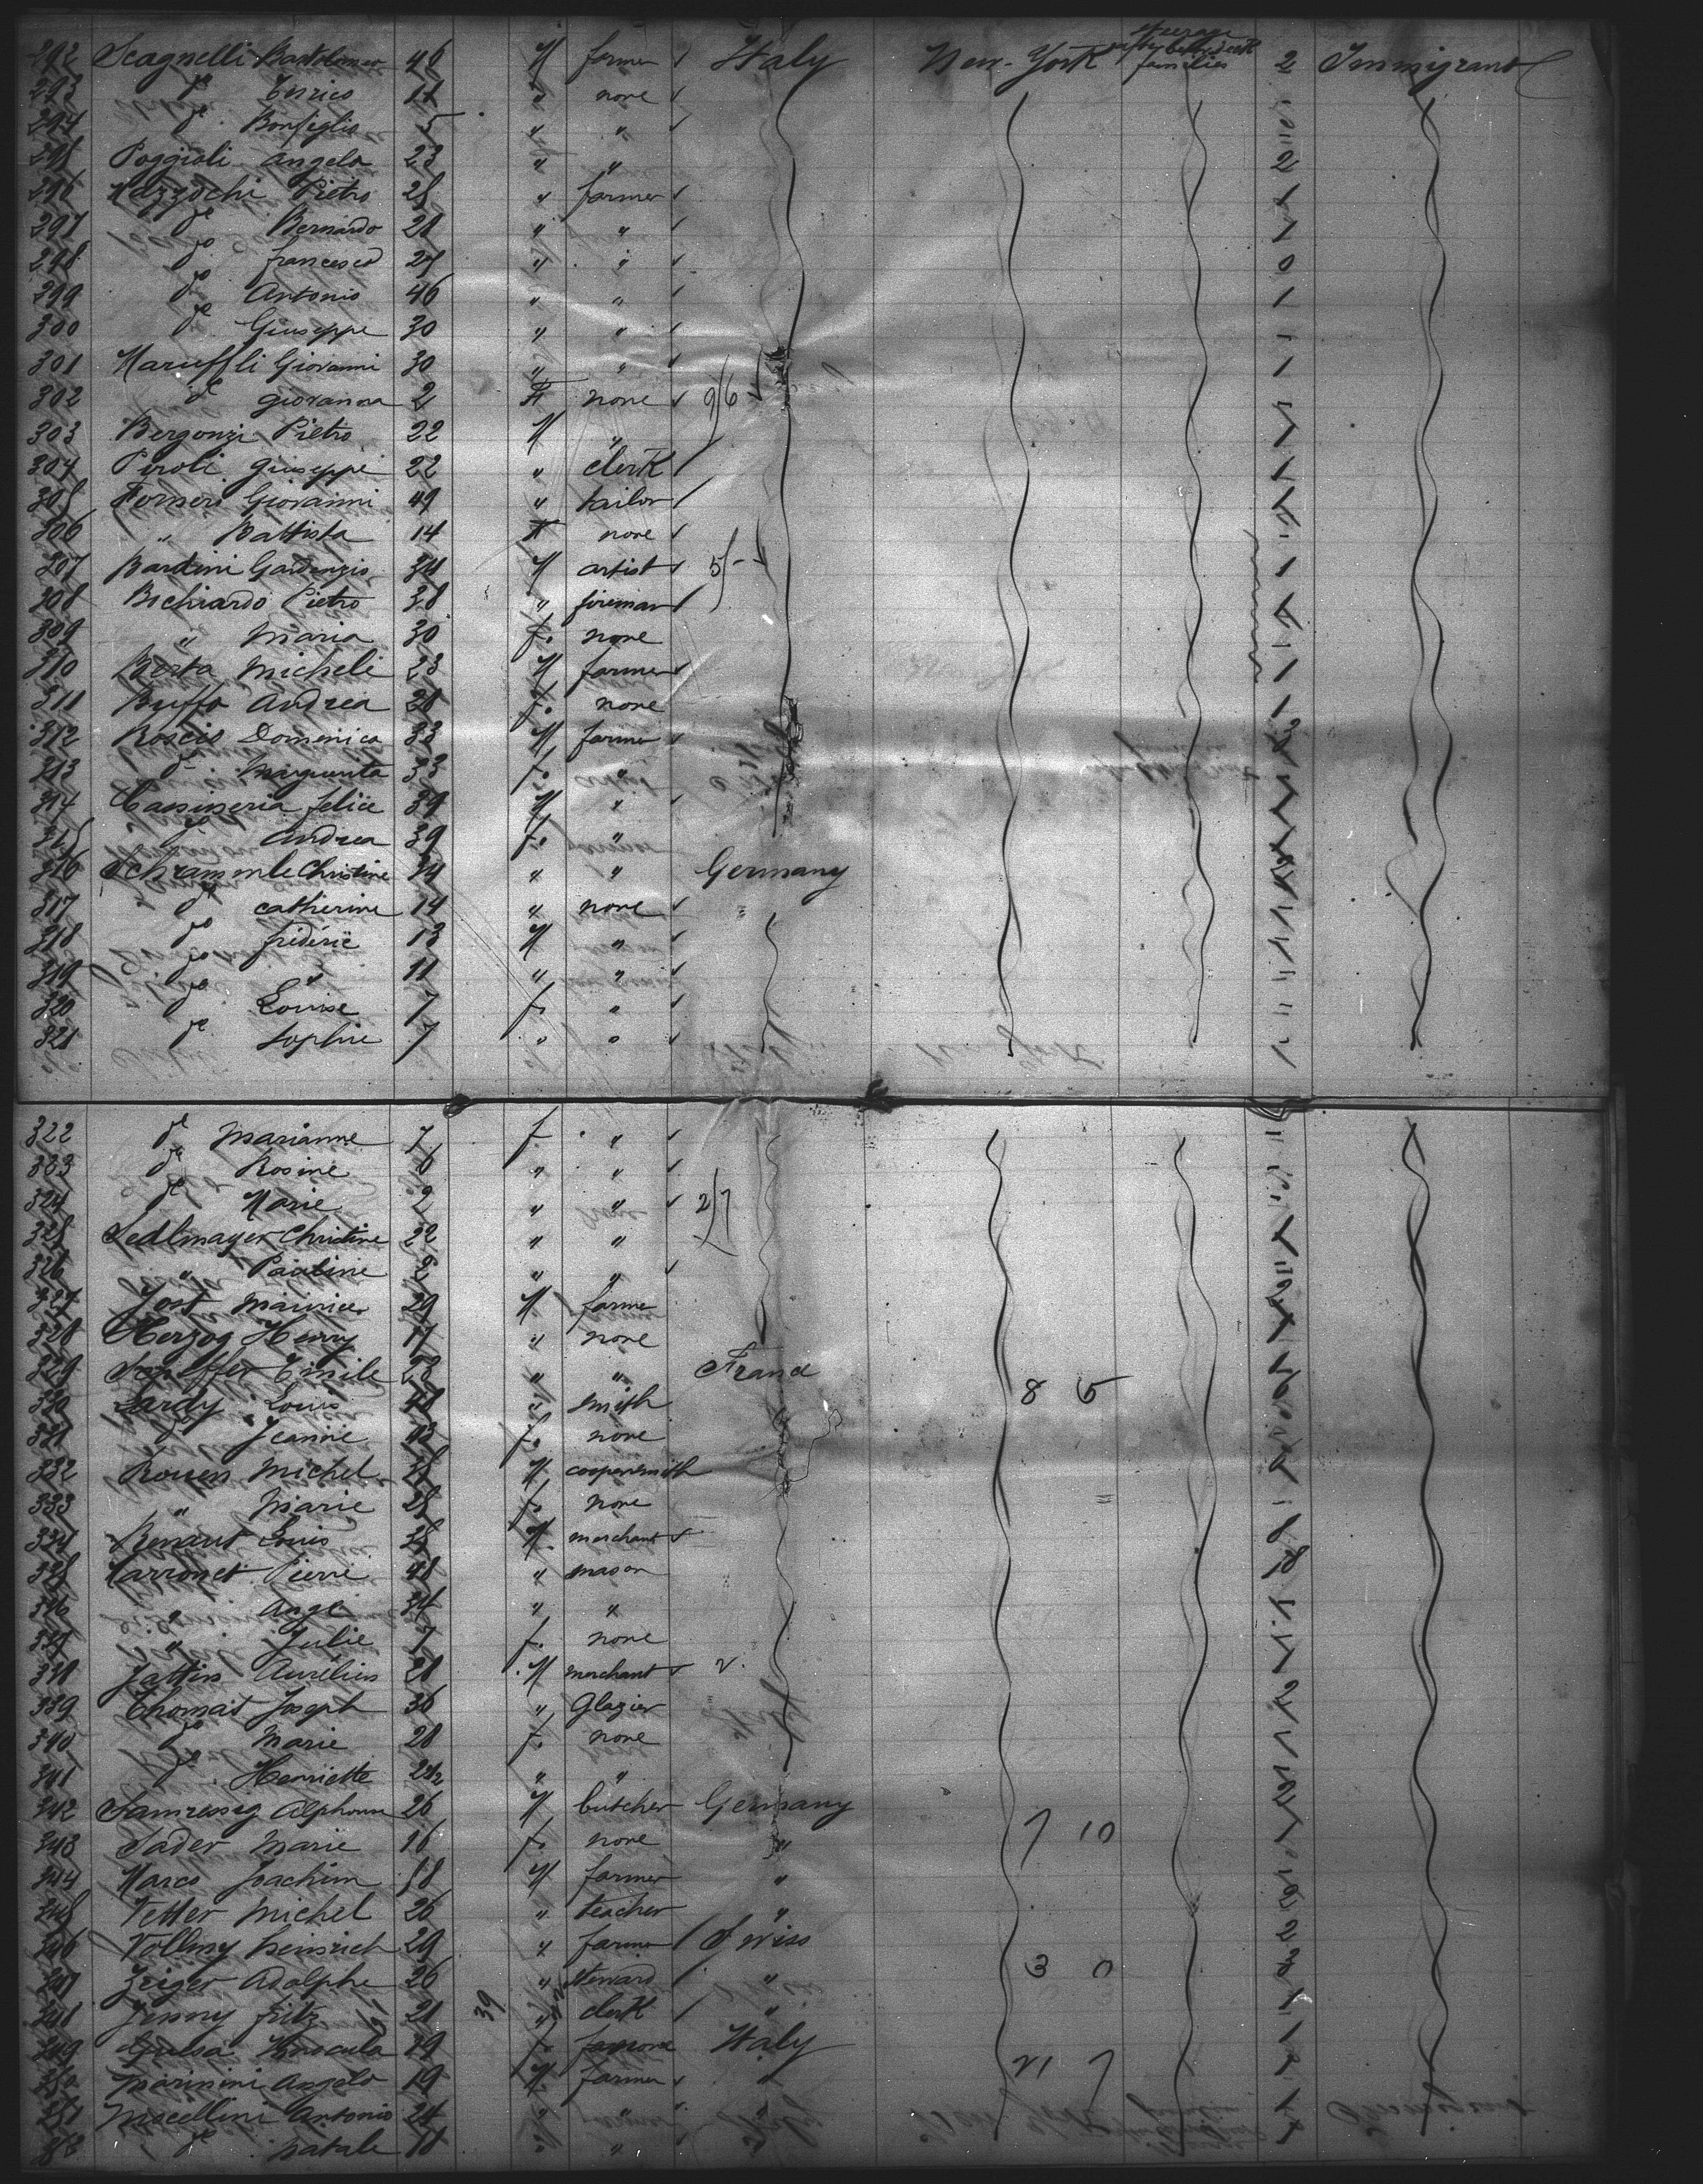 292 Scagnelli Bartolomeo 46 M farmer Italy New-York families 2 Immigrant
293 do Enrico 11 " none
294 do Bonfiglio 5 " "
295 Poggioli Angelo 23 " " 2
296 Mazzochi Pietro 25 " farmer
297 do Bernardo 28 " "
298 do francesco 27 " "
299 do Antonio 46 " "
300 do Giuseppe 30 " "
301 Maruffli Giovanni 30 " "
302 do giovanna 2 F none 9/6
303 Bergonzi Pietro 22 M "
304 Piroli giuseppe 22 " clerk
305 Forneri Giovanni 49 " tailor
306 " Battista 14 F none
307 Bardini 34 M artist 5
308 Bichiardo Pietro 38 " fireman
309 " Maria 30 f. none
310 Berta Micheli 23 M farmer
311 Buffa Andrea 28 f. none
312 Roscio Domenica 33 M farmer
313 do Marguerita 33 f. "
314 felice 39 M "
315 do Andrea 39 f. "
316 Schrammle Christine 34 " " Germany
317 do catherine 14 " none "
318 do fréderic 13 M "
319 do " 11 " "
320 do Louise 7 f. "
321 do Sophie 7 " "
322 do Marianne 7 f "
323 do Rosine 6 " "
324 do Marie 2 " " 2/7
325 Sedlmayer Christine 22 " "
326 " Pauline 2 " "
327 Jost Maurice 29 M farme
328 Herzog Henry 17 " none
329 Emile 23 " " France
330 Sardy Louis 48 " smith 8 5
331 do Jeanne 43 f. none
332 Rouen Michel M coopersmith
333 " Marie 28 f. none
334 Renaut Louis 25 M merchant
335 Marronet Pierre 48 " mason
336 " Ange 34 " "
337 " Julie 7 f. none
338 Jattin Aurélien 28 M merchant 2
339 Thomas Joseph 36 " Glazier
340 do Marie 28 f. none
341 do Henriette 2 1/2 " "
342 Alphonse 26 M butcher Germany
343 Sader Marie 16 f. none " 7 10
344 Marco Joachim 58 M farmer "
345 Vetter Michel 26 " teacher "
346 Vollmy heinrich 29 " farmer Swiss 2
347 Zeiger Adolphe 26 " steward " 3 0
348 Jenny fritz 21 39 " clerk "
349 19 f. Italy
350 Marinini Angelo 19 M farmer " 21 7
351 Mocellini Antonio 24 " " "
352 do Natale 18 " " "